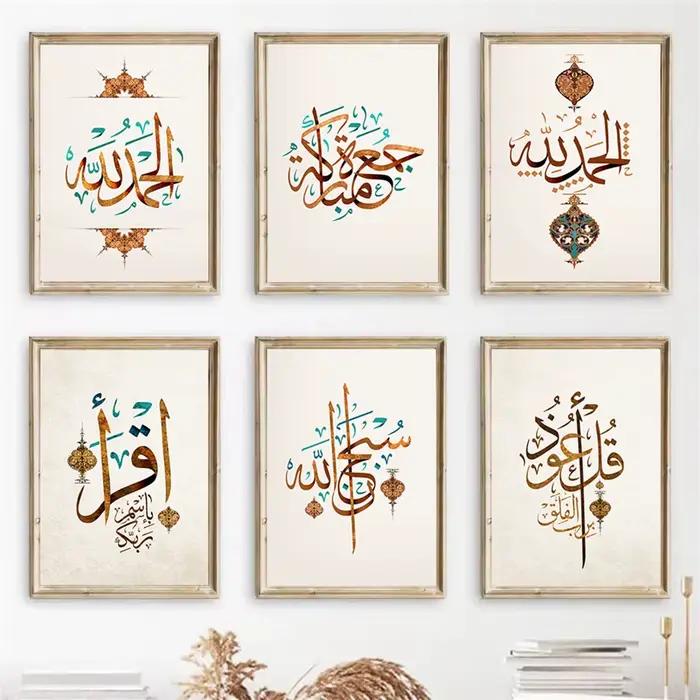 الحمد لله
جمعة مباركة
الحمد لله
اقرأ
باسم
ربك
سبحان الله
قل أعوذ
برب الفلق